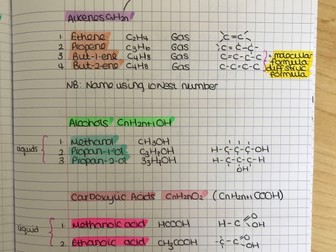 Alkenes CnH2n
1 Ethene C2H4 Gas >C=C<
2 Propene C3H6 Gas >C=C-C-
3 But-1-ene C4H8 Gas C=C-C-C molecular formula
4 But-2-ene C4H8 Gas C-C=C-C diff struc formula
NB: Name using lowest number
Alcohols CnH2n+1OH
liquids { 1 Methanol CH3OH
2 Propan-1-ol C3H7OH H-C-C-C-OH
3 Propan-2-ol H-C-C-C-H
OH
Carboxylic Acids CnH2nO2 (CnH2n+1COOH)
liquid { 1 Methanoic acid HCOOH H-C=O OH
2 Ethanoic acid CH3COOH -C-C=O OH